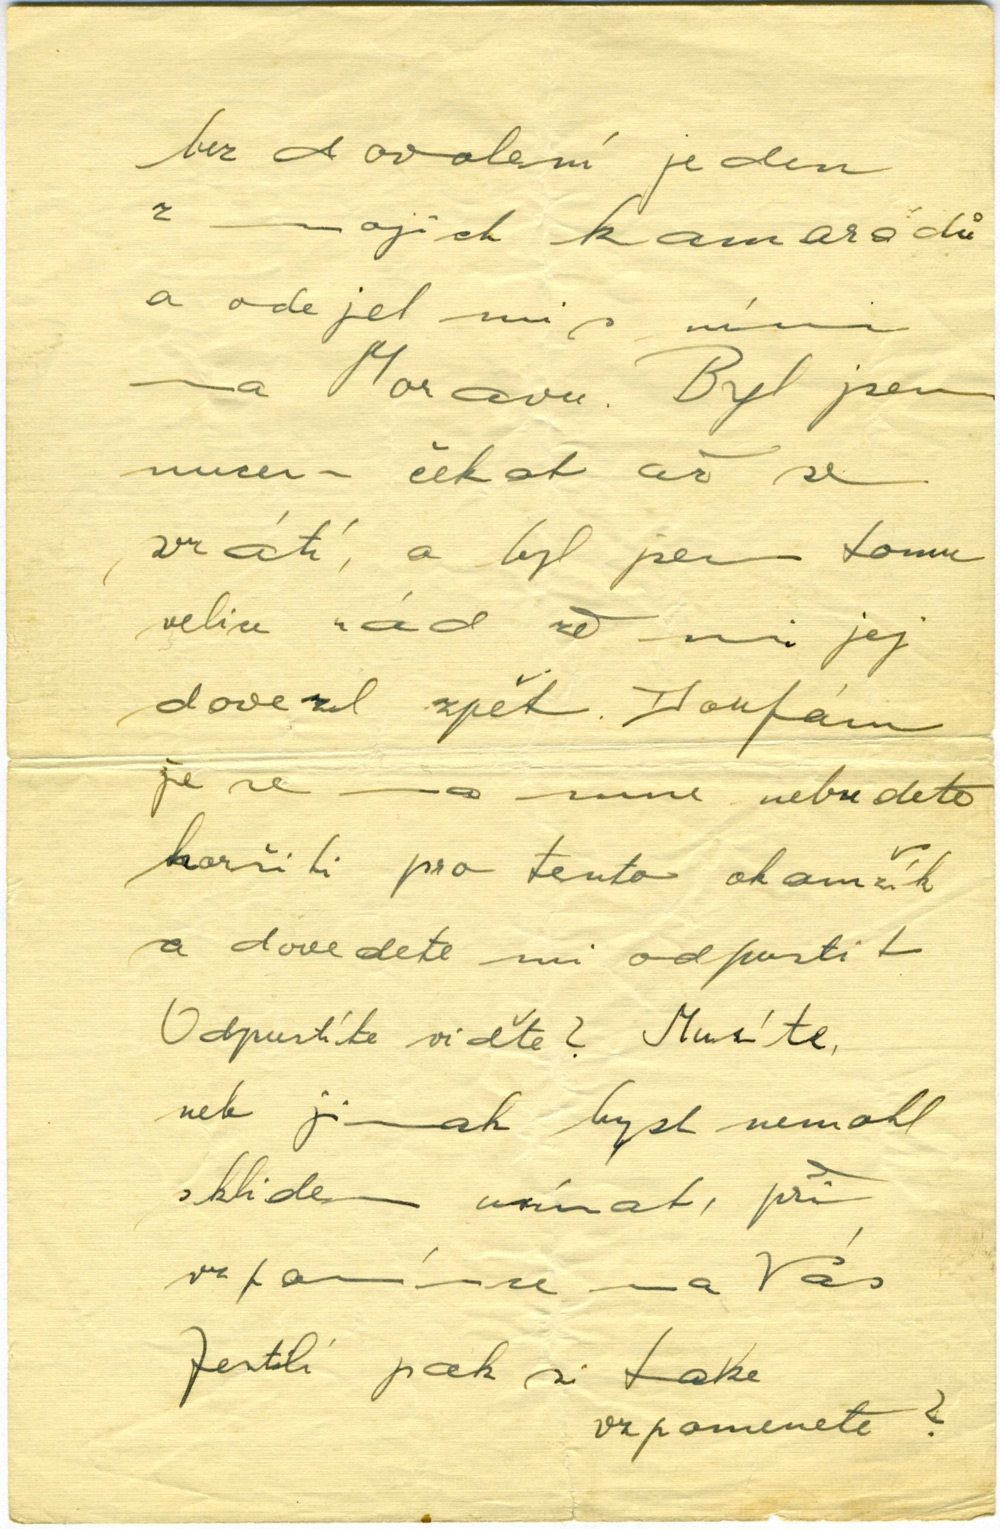 bez dovolení jeden
z mojich kamarádů
a odejel mi s ními
na Moravu. Byl jsem
nucen čekat až se
vrátí, a byl jsem tomu
velice rád že mi jej
dovezl zpět. Doufám
že se na mne nebudete
horšiti pro tento okamžik
a dovedete mi odpustit
Odpustíte viďte? Musíte,
neb jinak bysh nemohl
sklidem usínat, při
vzpomínce na Vás
Jestli pak si take
vzpomenete?